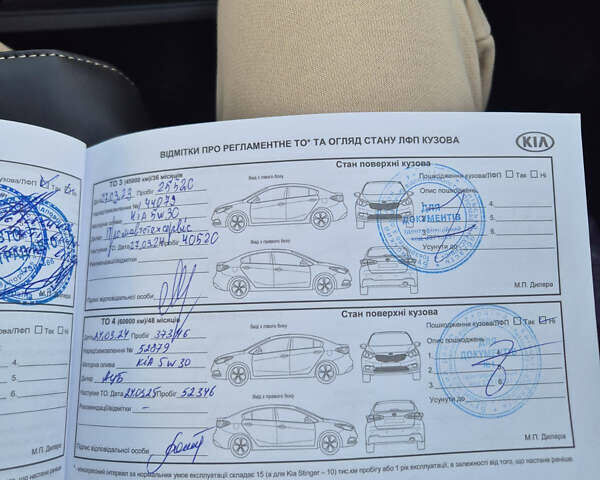 ВІДМІТКИ ПРО РЕГЛАМЕНТНЕ ТО* ТА ОГЛЯД СТАНУ ЛФП КУЗОВА
KIA
ТО 3 (45000 км)/36 місяців
Стан поверхні кузова
Вид з лівого боку
Пошкодження кузова/ЛФП Так Ні
Дата 27.03.23 Пробіг 25520
Опис пошкоджень
44079
KIA 5W30
1.
2.
3.
4.
ДЛЯ ДОКУМЕНТІВ
6.
8.
Наступне ТО: Дата 27.03.24 Пробіг 40520
Усунуто до
Рекомендації/відмітки
Вид з правого боку
Підпис відповідальної особи
М.П. Дилера
ТО 4 (60000 км)/48 місяців
Стан поверхні кузова
Вид з лівого боку
Пошкодження кузова/ЛФП Так Ні
Дата 24.03.24 Пробіг 37346
Опис пошкоджень
Наряд-замовлення № 52079
Моторна олива KIA 5W30
4.
ДЛЯ ДОКУМЕНТІВ
6.
8.
Дилер АЦБ
Наступне ТО: Дата 24.03.25 Пробіг 52346
Усунуто до
Рекомендації/відмітки –
Вид з правого боку
Підпис відповідальної особи
М.П. Дилера
кузова/ЛФП Так Ні
4.
М.П. Дилера
кузова/ЛФП Так Ні
4.
6.
8.
М.П. Дилера
* міжсервісний інтервал за нормальних умов експлуатації складає 15 (а для Kia Stinger – 10) тис.км пробігу або 1 рік експлуатації, в залежності від того, що настане раніше.